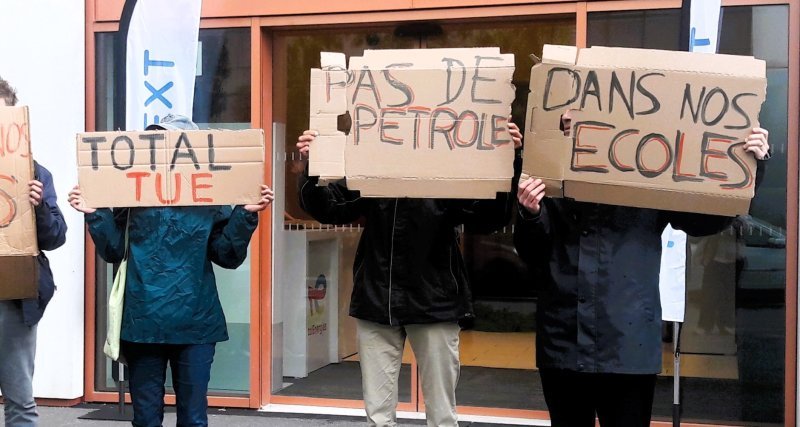 EXT
NOS
S
TOTAL
TUE
PAS DE
PETROLE
DANS NOS
ECOLES